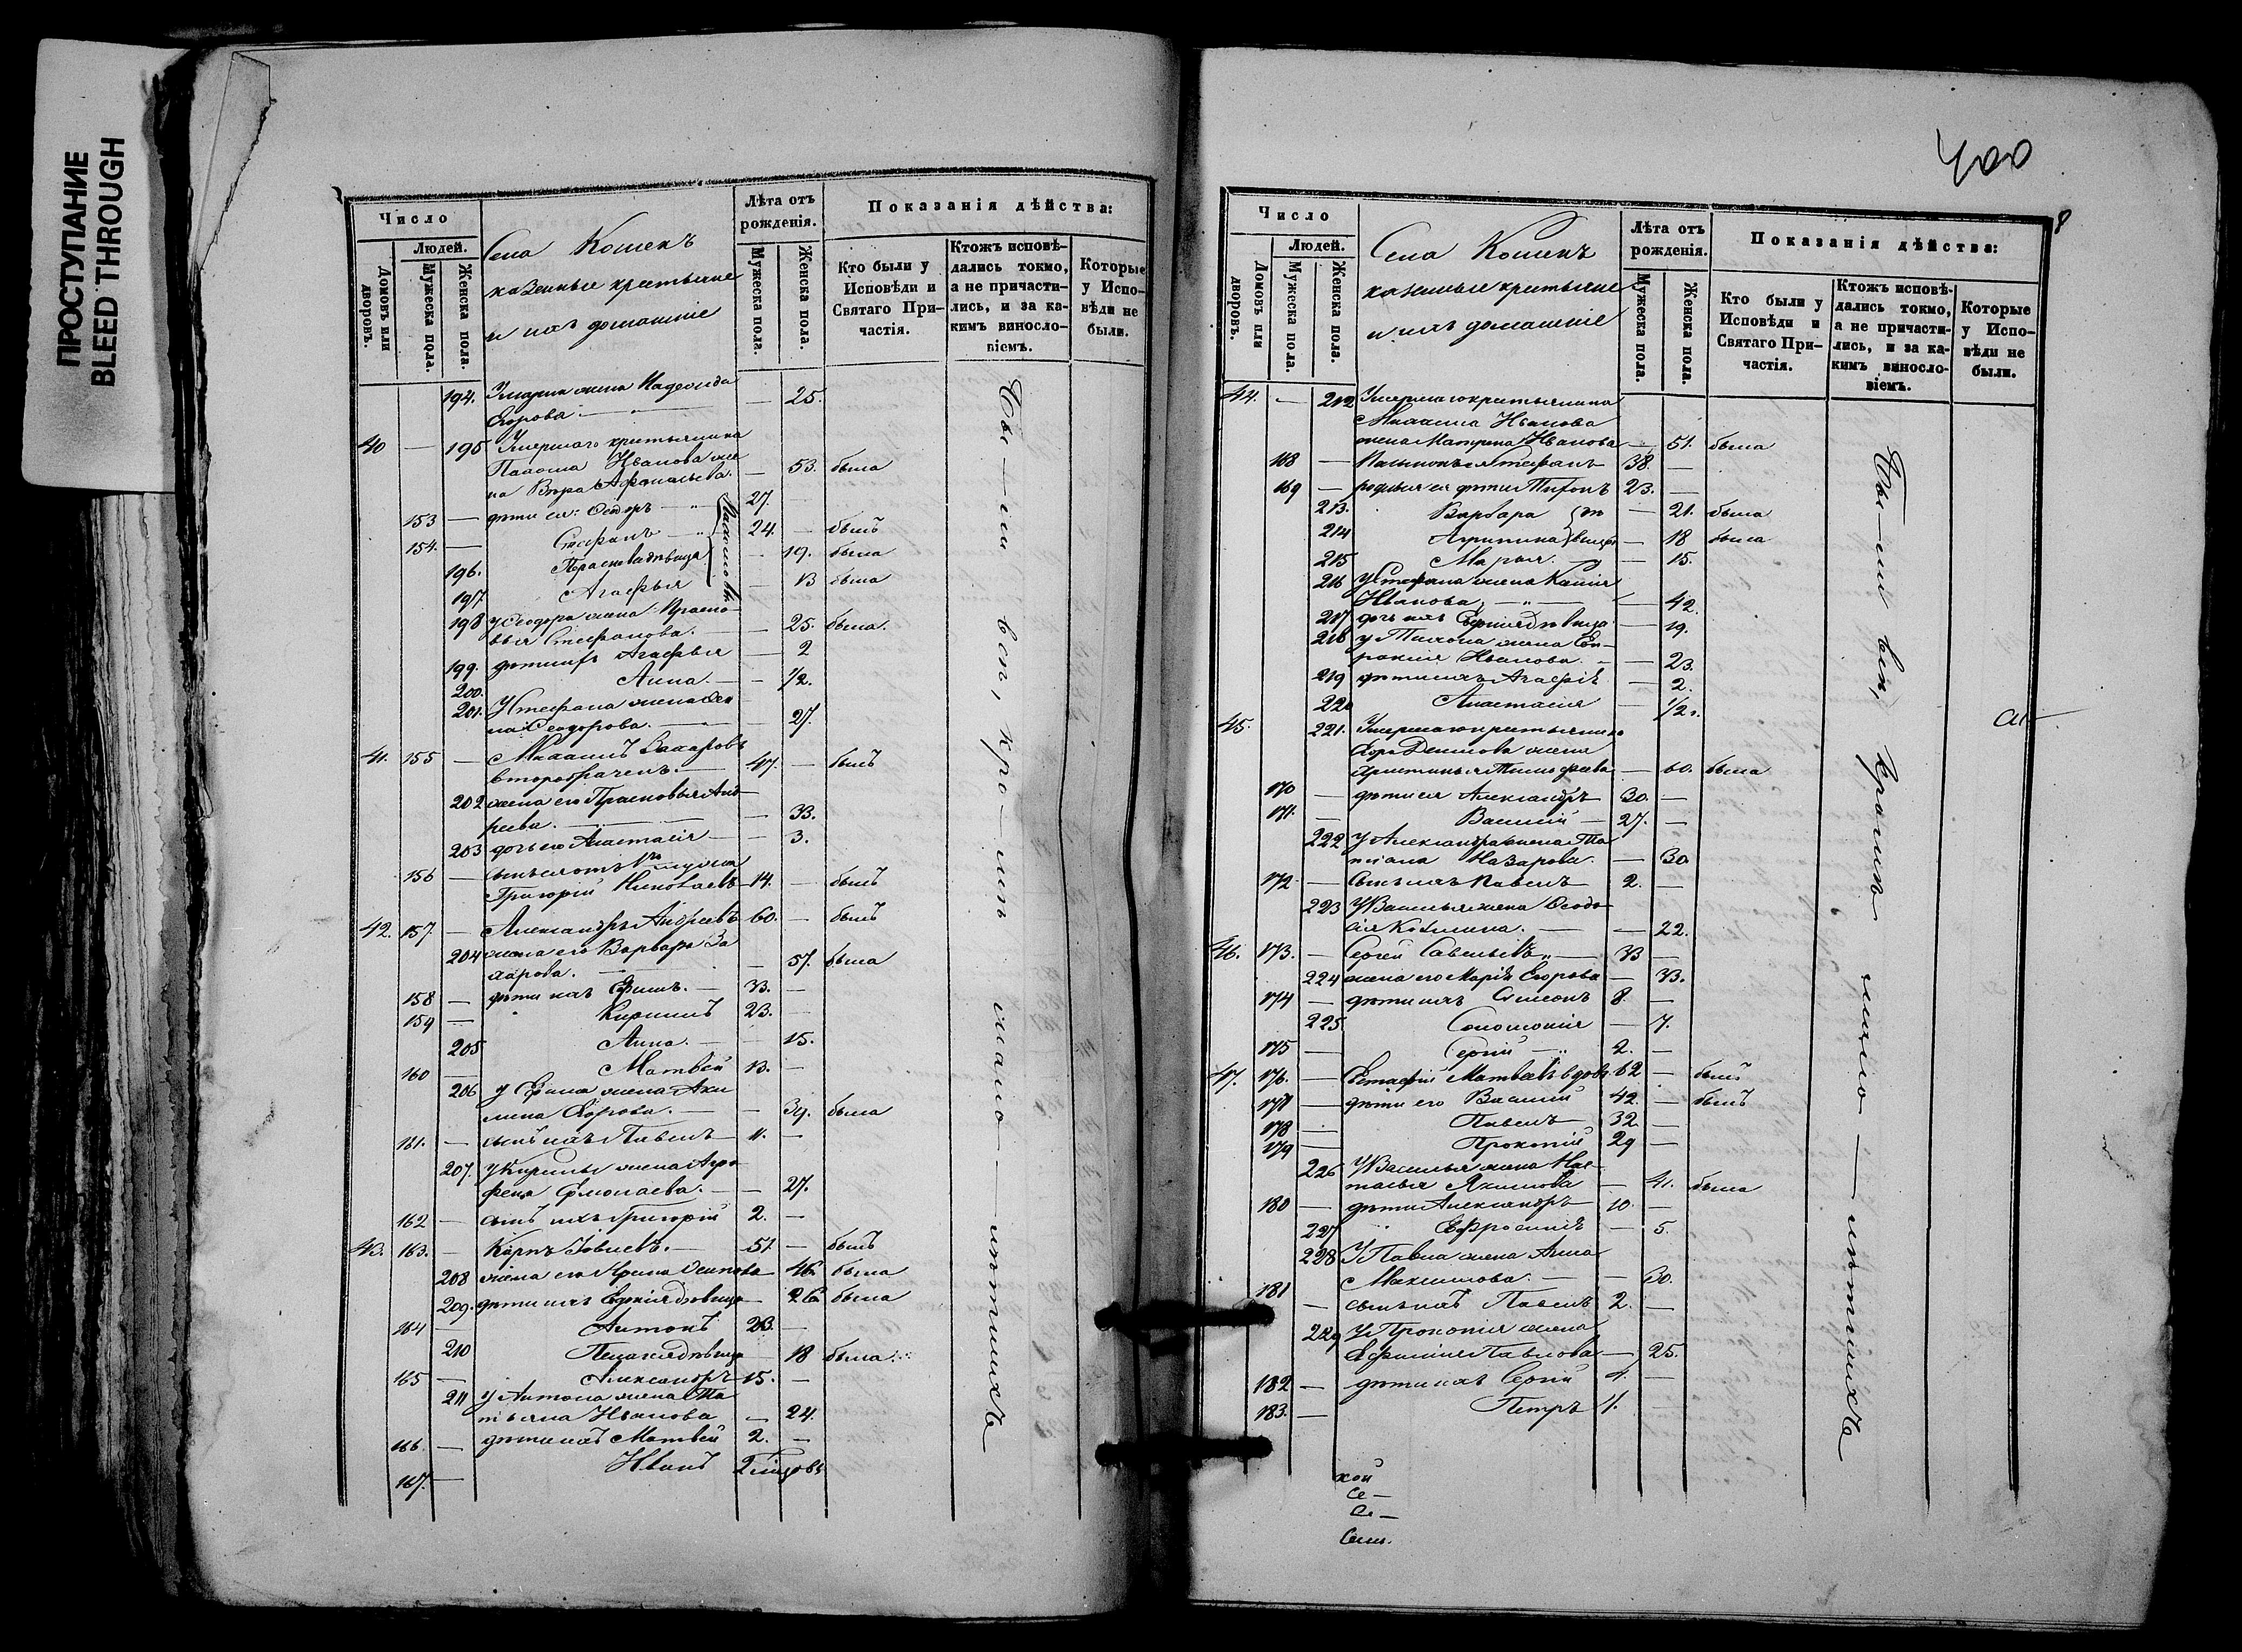 ПРОСТУПАНИЕ
BLEED THROUGH
Число
Людей.
Домовъ или дворовъ.
Мужеска пола.
Женска пола.
Села Кошекъ
казенные крестьяне
и ихъ домашніе
Лѣта отъ рожденія.
Мужеска пола.
Женска пола.
Показанія дѣйства:
Кто были у Исповѣди и Святаго Причастія.
Ктожъ исповѣдались токмо, а не причастились, и за какимъ винословіемъ.
Которые у Исповѣди не были.
194. жена Надежда
Егорова — 25.
40 — 195 Умершаго крестьянина
Иванова же
на Вѣра Афанасьева — 53. была
153 — дѣти ея: Ѳедоръ 27.
154. — Стефанъ 24. — былъ
196. Прасковья дѣвица — 19. была
197 Агафья — 13 была
198 у Ѳеодора жена Праско
вья Стефанова. — 25. была.
199. дѣти ихъ Агафья — 2
200. Анна. — 1/2.
201. У Стефана жена
Ѳеодорова. — 27.
41. 155 — Михаилъ Захаровъ
второбраченъ. 47. — былъ
202 жена его Прасковья Анд
реева. — 33.
203 дочь его Анастасія — 3.
156 —
Григорій Николаевъ 14. — былъ
42. 157 — Александръ Андреевъ 60. — былъ
204 жена его Варвара За
харова. — 57. была
158 — дѣти ихъ Ефимъ. 33. —
159 — Кириллъ 23. —
205 Анна. — 15.
160 — Матвей 13. —
206 у Ефима жена Аки
лина Егорова. — 39. была
161. — сынъ ихъ Павелъ 11. —
207. у Кириллы жена Агра
фена Ермолаева. — 27.
162 — сынъ ихъ Григорій 2. —
43. 163. — Карпъ Іовлевъ. 51 — былъ
208 жена его Ирина Осипова 46 была
209. дѣти ихъ Евдокія дѣвица 26 была
164 — Антонъ 23. —
210 Пелагея дѣвица 18 была
165 — Александръ 15. —
211 у Антона жена Та
тьяна Иванова — 24.
166. — дѣти ихъ Матвей 2. —
167. — Иванъ
Бы — ли всѣ, кро — мѣ мало — лѣтнихъ
400
8
Число
Людей.
Домовъ или дворовъ.
Мужеска пола.
Женска пола.
Села Кошекъ
казенные крестьяне
и ихъ домашніе
Лѣта отъ рожденія.
Мужеска пола.
Женска пола.
Показанія дѣйства:
Кто были у Исповѣди и Святаго Причастія.
Ктожъ исповѣдались токмо, а не причастились, и за какимъ винословіемъ.
Которые у Исповѣди не были.
44. — 212 Умершаго крестьянина
Михаила Иванова
жена Матрена Иванова — 51. была
168 — Стефанъ 38. —
169 — родныя ея дѣти Тихонъ 23. —
213. Варвара — 21. была
214 Агрипина — 18 была
215 Марья. — 15.
216 у Стефана жена Ксенія
Иванова — 42.
217 дочь ихъ дѣвица — 19.
218 у Тихона жена Ев
ракія Иванова. — 23.
219 дѣти ихъ Агафія — 2.
220 Анастасія — 1/2.
45. 221. Умершаго крестьянина
жена
Христинья Тимофеева — 60. была
170 — дѣти ея Александръ 30. —
171. — Василій 27. —
222 у Александра жена Та
тіана Назарова. — 30
172 — сынъ ихъ Павелъ 2. —
223 У Василья жена Ѳеодо
сія — 22.
46. 173. — Сергей Савельевъ 33 —
224 жена его Марія Егорова — 33.
174 — дѣти ихъ Симеонъ 8. —
225 Соломонія — 7.
175 — Сергій 2. —
47. 176. — Евстафій Матвеевъ вдовъ 62 — былъ
177 — дѣти его Василій 42. — былъ
178 — Павелъ 32 —
179 — Прокопій 29 —
226 У Василья жена Нас
тасья Якимова — 41. была
180 — дѣти Александръ 10. —
227 Евфросинія — 5.
228 У Павла жена Анна
Максимова. — 30.
181 — сынъ ихъ Павелъ 2. —
229 У Прокопія жена
Ефимія Павлова — 25.
182 — дѣти ихъ Сергій 4. —
183. — Петръ 1. —
Бы — ли всѣ, кромѣ мало — лѣтнихъ